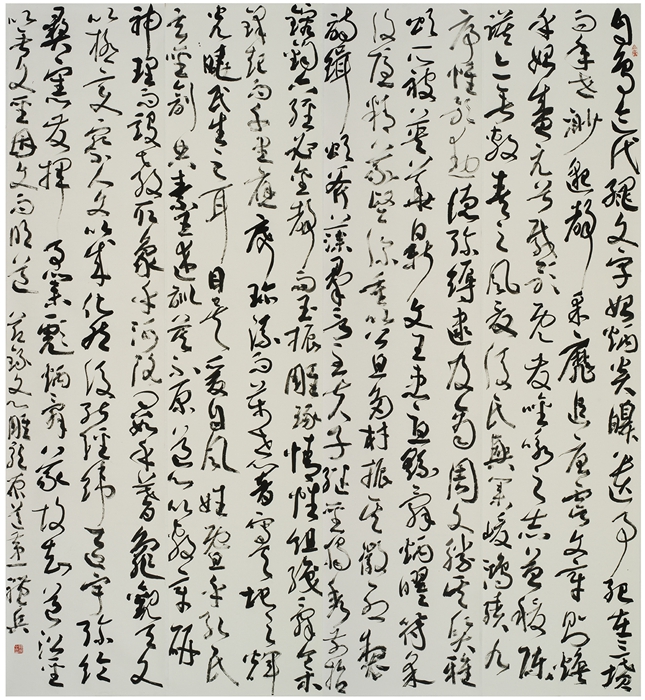 自鳥跡代繩文字始炳炎皞遺事紀在三墳
而年世渺邈聲采靡追唐虞文章則煥
乎始盛元首載歌既發吟詠之志益稷陳
謨亦垂敷奏之風夏后氏興業峻鴻績九
序惟歌勳德彌縟逮及商周文勝其質雅
頌所被英華日新文王患憂繇辭炳曜符采
復隱精義堅深重以公旦多材振其徽烈制
詩緝頌斧藻群言至夫子繼聖獨秀前哲
鎔鈞六經必金聲而玉振雕琢情性組織辭令木
鐸起而千里應席珍流而萬世響寫天地之輝
光曉民生之耳目矣爰自風姓暨乎孔氏
玄聖創典素王述訓莫不原道心以敷章研
神理而設教取象乎河洛問數乎蓍龜觀天文
以極變察人文以成化然後能經緯區宇彌綸
彝憲發揮事業彪炳辭義故知道沿聖
以垂文聖因文而明道 文心雕龍原道第一